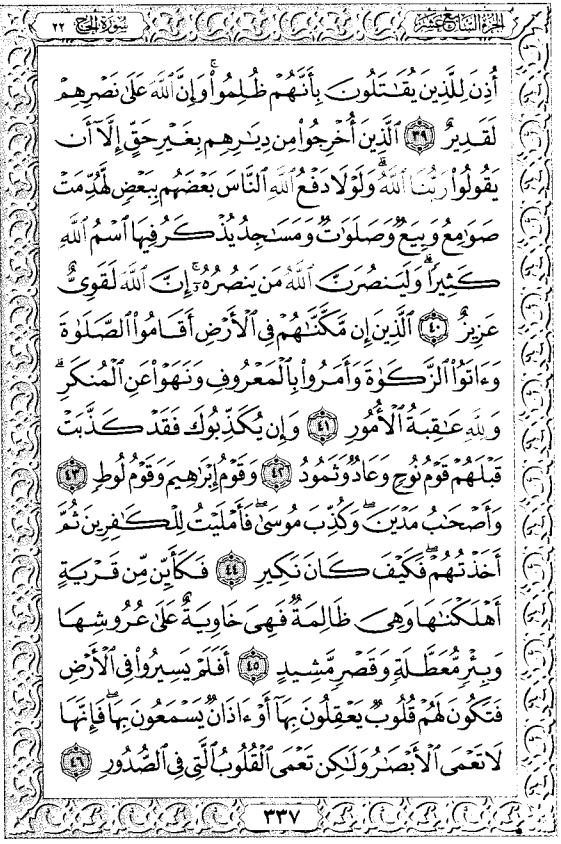 الجزء السابع عشر
سورة الحج ٢٢
أُذِنَ لِلَّذِينَ يُقَٰتَلُونَ بِأَنَّهُمْ ظُلِمُوا۟ۚ وَإِنَّ ٱللَّهَ عَلَىٰ نَصْرِهِمْ
لَقَدِيرٌ ٣٩ ٱلَّذِينَ أُخْرِجُوا۟ مِن دِيَٰرِهِم بِغَيْرِ حَقٍّ إِلَّآ أَن
يَقُولُوا۟ رَبُّنَا ٱللَّهُۗ وَلَوْلَا دَفْعُ ٱللَّهِ ٱلنَّاسَ بَعْضَهُم بِبَعْضٍ لَّهُدِّمَتْ
صَوَٰمِعُ وَبِيَعٌ وَصَلَوَٰتٌ وَمَسَٰجِدُ يُذْكَرُ فِيهَا ٱسْمُ ٱللَّهِ
كَثِيرًاۗ وَلَيَنصُرَنَّ ٱللَّهُ مَن يَنصُرُهُۥٓۗ إِنَّ ٱللَّهَ لَقَوِىٌّ
عَزِيزٌ ٤٠ ٱلَّذِينَ إِن مَّكَّنَّٰهُمْ فِى ٱلْأَرْضِ أَقَامُوا۟ ٱلصَّلَوٰةَ
وَءَاتَوُا۟ ٱلزَّكَوٰةَ وَأَمَرُوا۟ بِٱلْمَعْرُوفِ وَنَهَوْا۟ عَنِ ٱلْمُنكَرِۗ
وَلِلَّهِ عَٰقِبَةُ ٱلْأُمُورِ ٤١ وَإِن يُكَذِّبُوكَ فَقَدْ كَذَّبَتْ
قَبْلَهُمْ قَوْمُ نُوحٍ وَعَادٌ وَثَمُودُ ٤٢ وَقَوْمُ إِبْرَٰهِيمَ وَقَوْمُ لُوطٍ ٤٣
وَأَصْحَٰبُ مَدْيَنَۖ وَكُذِّبَ مُوسَىٰۖ فَأَمْلَيْتُ لِلْكَٰفِرِينَ ثُمَّ
أَخَذْتُهُمْۖ فَكَيْفَ كَانَ نَكِيرِ ٤٤ فَكَأَيِّن مِّن قَرْيَةٍ
أَهْلَكْنَٰهَا وَهِىَ ظَالِمَةٌ فَهِىَ خَاوِيَةٌ عَلَىٰ عُرُوشِهَا
وَبِئْرٍ مُّعَطَّلَةٍ وَقَصْرٍ مَّشِيدٍ ٤٥ أَفَلَمْ يَسِيرُوا۟ فِى ٱلْأَرْضِ
فَتَكُونَ لَهُمْ قُلُوبٌ يَعْقِلُونَ بِهَآ أَوْ ءَاذَانٌ يَسْمَعُونَ بِهَاۖ فَإِنَّهَا
لَا تَعْمَى ٱلْأَبْصَٰرُ وَلَٰكِن تَعْمَى ٱلْقُلُوبُ ٱلَّتِى فِى ٱلصُّدُورِ ٤٦
٣٣٧